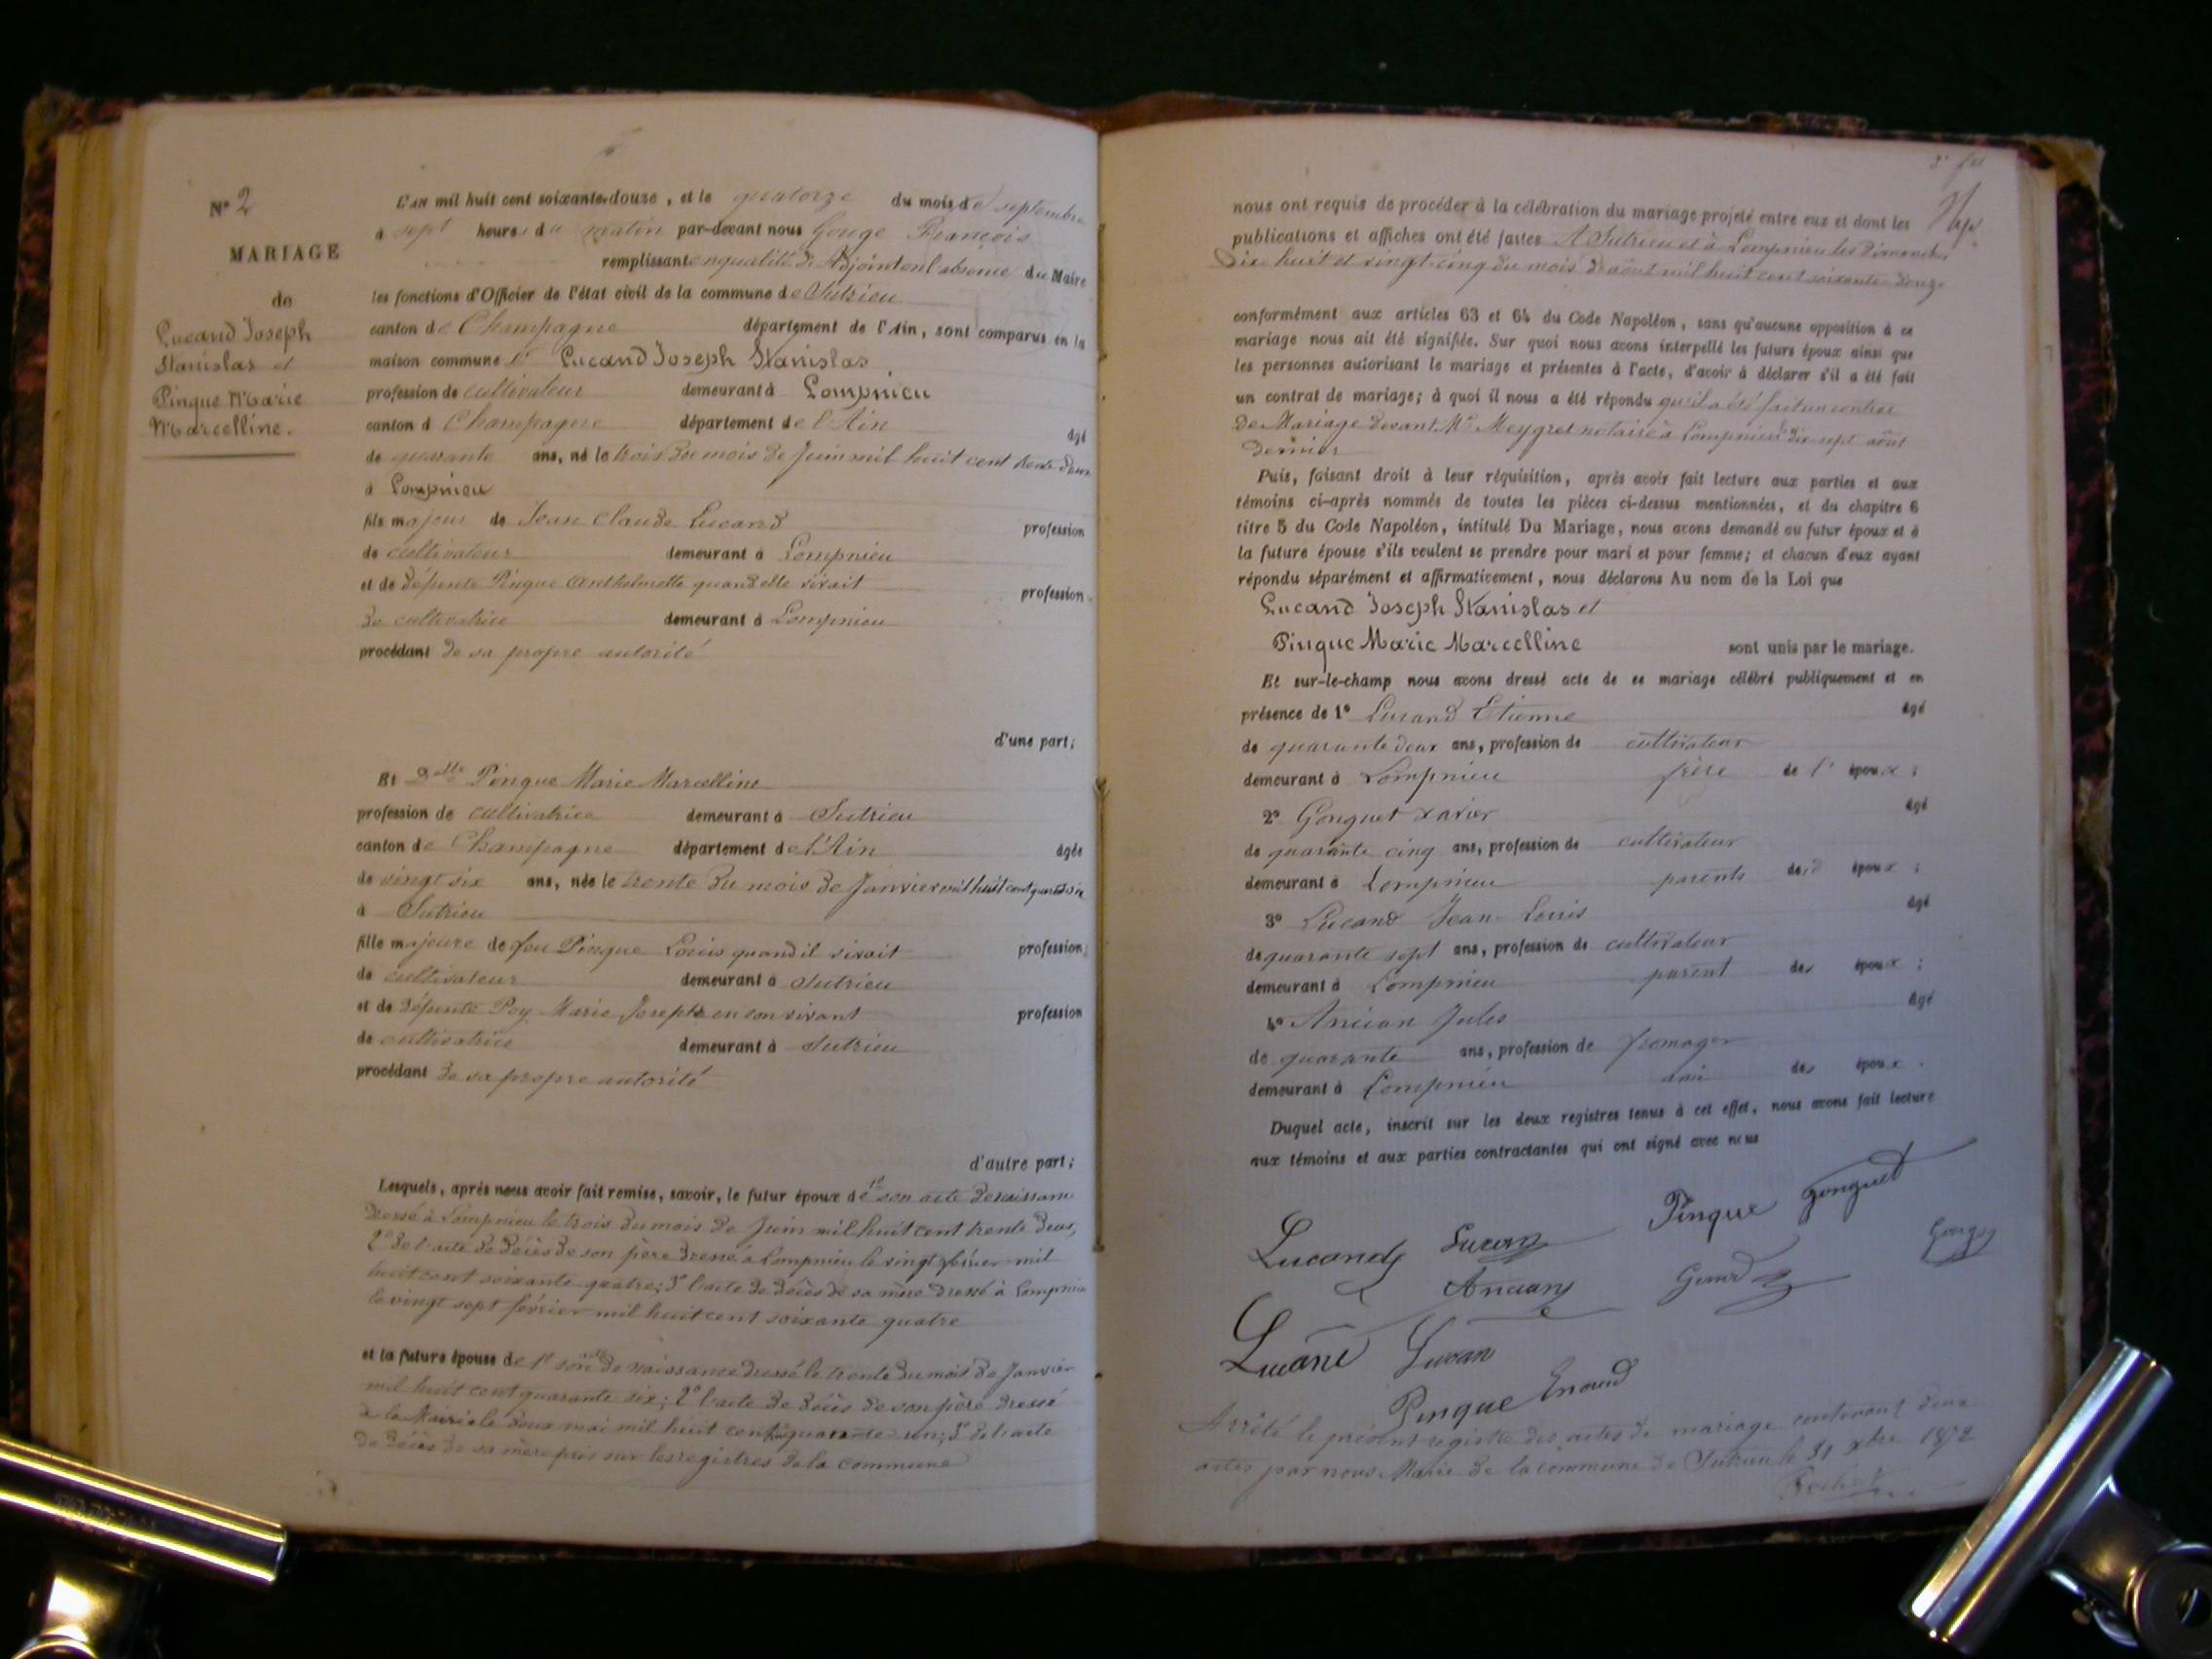 N° 2
MARIAGE
de
Lucand Joseph
Stanislas et
Pinque Marie
Marcelline.
L'AN mil huit cent soixante-douze, et le quatorze du mois de septembre
à sept heures du matin par-devant nous Gouge François
remplissant en qualité d'Adjoint en l'absence du Maire
les fonctions d'Officier de l'état civil de la commune de Sutrieu
canton de Champagne département de l'Ain, sont comparus en la
maison commune Lucand Joseph Stanislas
profession de cultivateur demeurant à Lompnieu
canton d Champagne département de l'Ain âgé
de quarante ans, né le trois du mois de Juin mil huit cent trente deux
à Lompnieu
fils majeur de Jean Claude Lucand profession
de cultivateur demeurant à Lompnieu
et de défunte Pinque Anthelmette quand elle vivait profession
de cultivatrice demeurant à Lompnieu
procédant de sa propre autorité
d'une part;
Et Delle Pinque Marie Marcelline
profession de cultivatrice demeurant à Sutrieu
canton de Champagne département de l'Ain âgée
de vingt six ans, née le trente du mois de Janvier mil huit cent quarante six
à Sutrieu
fille majeure de feu Pinque Louis quand il vivait profession
de cultivateur demeurant à Sutrieu
et de défunte Poy Marie Josephe en son vivant profession
de cultivatrice demeurant à Sutrieu
procédant de sa propre autorité
d'autre part;
Lesquels, après nous avoir fait remise, savoir, le futur époux de 1° son acte de naissance
dressé à Lompnieu le trois du mois de Juin mil huit cent trente deux,
2° de l'acte de décès de son père dressé à Lompnieu le vingt février mil
huit cent soixante quatre; 3° l'acte de décès de sa mère dressé à Lompnieu
le vingt sept février mil huit cent soixante quatre
et la future épouse de 1° son acte de naissance dressé le trente du mois de Janvier
mil huit cent quarante six; 2° l'acte de décès de son père dressé
à la Mairie le deux mai mil huit cent quarante un; 3° de l'acte
de décès de sa mère pris sur les registres de la commune
nous ont requis de procéder à la célébration du mariage projeté entre eux et dont les
publications et affiches ont été faites A Sutrieu et à Lompnieu les Dimanches
Dix huit et vingt-cinq du mois d'août mil huit cent soixante douze
conformément aux articles 63 et 64 du Code Napoléon, sans qu'aucune opposition à ce
mariage nous ait été signifiée. Sur quoi nous avons interpellé les futurs époux ainsi que
les personnes autorisant le mariage et présentes à l'acte, d'avoir à déclarer s'il a été fait
un contrat de mariage; à quoi il nous a été répondu qu'il a été fait un contrat
de Mariage devant Me Meygret notaire à Lompnieu dix sept août
dernier
Puis, faisant droit à leur réquisition, après avoir fait lecture aux parties et aux
témoins ci-après nommés de toutes les pièces ci-dessus mentionnées, et du chapitre 6
titre 5 du Code Napoléon, intitulé Du Mariage, nous avons demandé au futur époux et à
la future épouse s'ils veulent se prendre pour mari et pour femme; et chacun d'eux ayant
répondu séparément et affirmativement, nous déclarons Au nom de la Loi que
Lucand Joseph Stanislas et
Pinque Marie Marcelline sont unis par le mariage.
Et sur-le-champ nous avons dressé acte de ce mariage célébré publiquement et en
présence de 1° Lucand Etienne âgé
de quarante deux ans, profession de cultivateur
demeurant à Lompnieu frère de l' époux;
2° Gonguet Xavier âgé
de quarante cinq ans, profession de cultivateur
demeurant à Lompnieu parents des époux;
3° Lucand Jean Louis âgé
de quarante sept ans, profession de cultivateur
demeurant à Lompnieu parent des époux;
4° Ancian Jules âgé
de quarante ans, profession de fromager
demeurant à Lompnieu ami des époux.
Duquel acte, inscrit sur les deux registres tenus à cet effet, nous avons fait lecture
aux témoins et aux parties contractantes qui ont signé avec nous
Lucand Pinque Gonguet
Ancian
Pinque
Arrêté le présent registre des actes de mariage contenant deux
actes par nous Maire de la commune de Sutrieu le 31 Xbre 1872